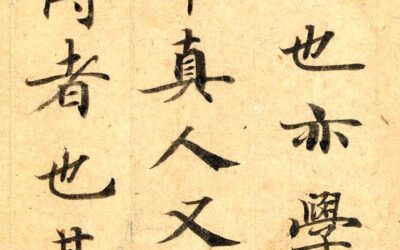 也亦學
真人又
者也